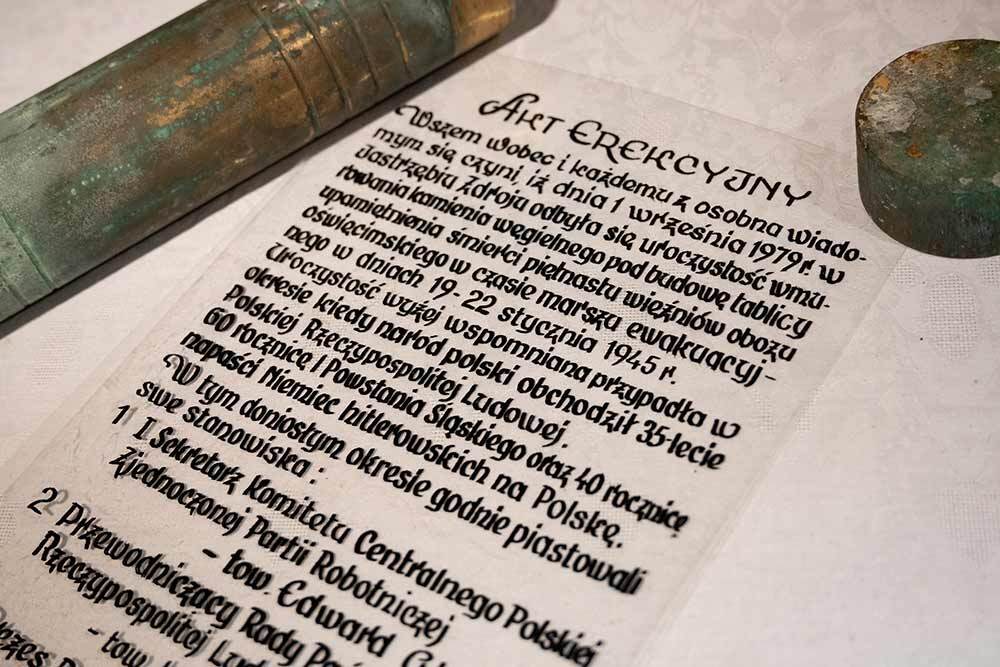 Akt Erekcyjny
Wszem wobec i każdemu z osobna wiado-
mym się czyni, iż dnia 1 września 1979 r. w
Jastrzębiu Zdroju odbyła się uroczystość wmu-
rowania kamienia węgielnego pod budowę tablicy
upamiętnienia śmierci piętnastu więźniów obozu
oświęcimskiego w czasie marszu ewakuacyj-
nego w dniach 19-22 stycznia 1945 r.
Uroczystość wyżej wspomniana przypadła w
okresie kiedy naród polski obchodził 35-lecie
Polskiej Rzeczypospolitej Ludowej,
60 rocznicę I Powstania Śląskiego oraz 40 rocznicę
napaści Niemiec hitlerowskich na Polskę.
W tym doniosłym okresie godnie piastowali
swe stanowiska:
1 I Sekretarz Komitetu Centralnego Polskiej
Zjednoczonej Partii Robotniczej
- tow. Edward
2 Przewodniczący Rady
Rzeczypospolitej
- tow.